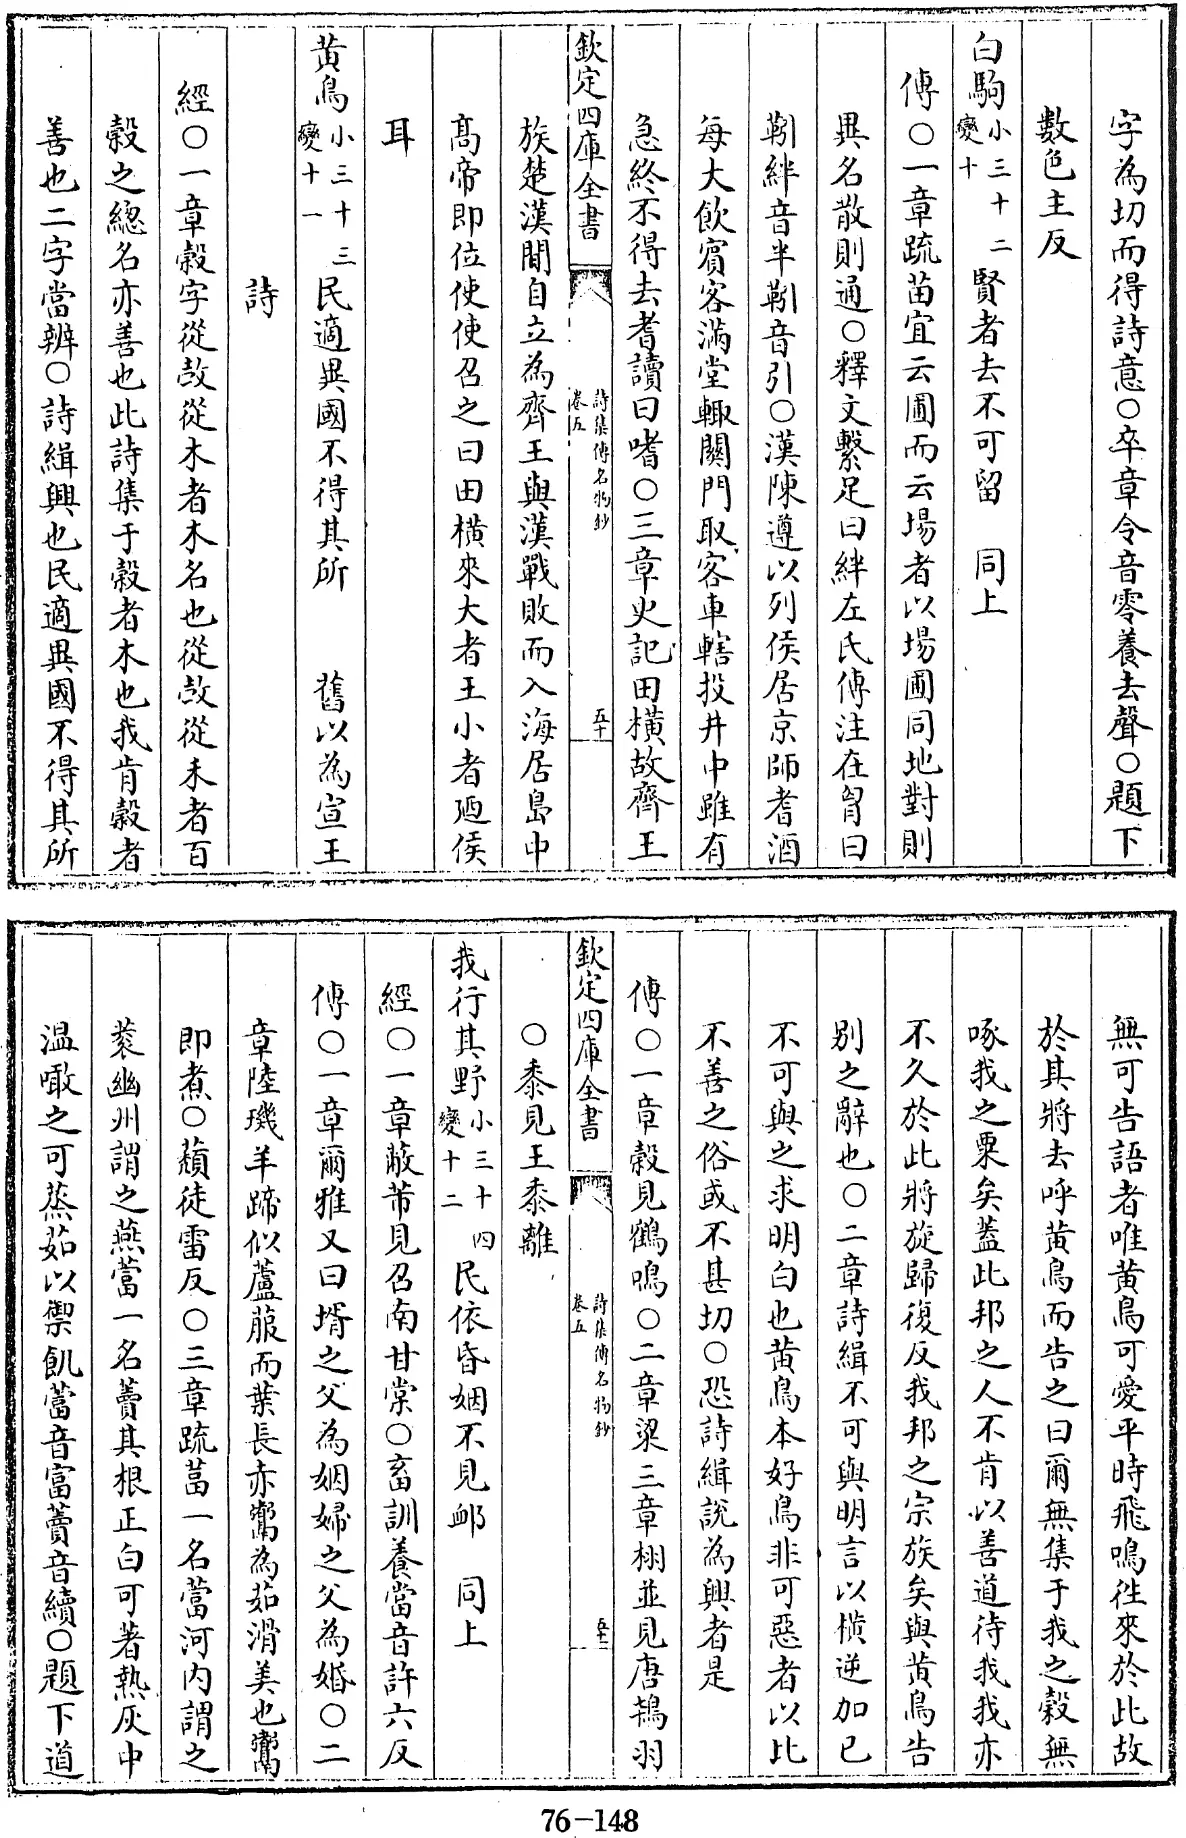 字為切而得詩意○卒章令音零養去聲○題下
數色主反
白駒小三十二變十賢者去不可留 同上
傳○一章疏苗宜云圃而云場者以場圃同地對則
異名散則通○釋文繫足曰絆左氏傳注在胷曰
靷絆音半靷音引○漢陳遵以列侯居京師耆酒
每大飲賓客滿堂輙關門取客車轄投井中雖有
急終不得去耆讀曰嗜○三章史記田橫故齊王
欽定四庫全書 詩集傳名物鈔卷五 五十
族楚漢間自立為齊王與漢戰敗而入海居島中
高帝即位使使召之曰田橫來大者王小者廼侯
耳
黃鳥小三十三變十一民適異國不得其所 舊以為宣王
詩
經○一章榖字從𣪊從木者木名也從𣪊從禾者百
穀之總名亦善也此詩集于榖者木也我肯穀者
善也二字當辨○詩緝興也民適異國不得其所
無可告語者唯黃鳥可愛平時飛鳴徃來於此故
於其將去呼黃鳥而告之曰爾無集于我之榖無
啄我之粟矣蓋此邦之人不肯以善道待我我亦
不久於此將旋歸復反我邦之宗族矣與黃鳥告
别之辭也○二章詩緝不可與明言以橫逆加已
不可與之求明白也黃鳥本好鳥非可惡者以比
不善之俗或不甚切○恐詩緝說為興者是
傳○一章榖見鶴鳴○二章梁三章栩並見唐鴇羽
欽定四庫全書 詩集傳名物鈔卷五 五十一
○黍見王黍離
我行其野小三十四變十二民依昏姻不見䘏 同上
經○一章蔽芾見召南甘棠○畜訓養當音許六反
傳○一章爾雅又曰壻之父為姻婦之父為婚○二
章陸璣羊蹄似蘆菔而葉長赤鬻為茹滑美也鬻
即煮○蘈徒雷反○三章疏葍一名䔰河内謂之
䔰幽州謂之燕䔰一名藚其根正白可著熱灰中
温噉之可蒸茹以禦飢䔰音富藚音續○題下道
76-148